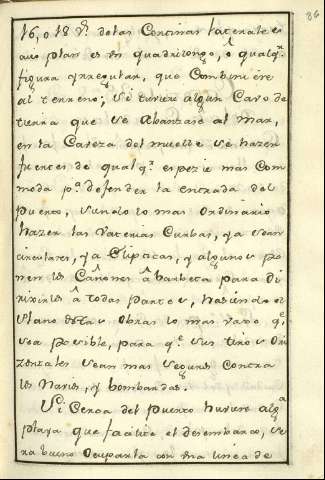 86
16, o 18 V.s delas Concinas laterales
cuio plan es un quadrilongo, ô qualq.r
figura yrregular, que Combiniere
al terreno; Si tuviere algun Cavo de
tierra que se Abanzase al mar,
en la Caveza del muelle se hazen
fuertes de qualq.r espezie mas Com
moda p.a defender la entrada del
puerto, siendo lo mas Ordinario
hazer las Vaterias Curbas, ya sean
circulares, ya Elipticas, y algunos po
nen los Cañones â barbeta para Di
rixirlos â todas partes, haciendo el
plano destas Obras lo mas raso q.e
sea posible, para q.e sus tiros Ori
zontales sean mas seguros contra
los Navios, y bombardas.
Si Cerca del puerto huviere alg.a
playa que facilite el desembarco, se
ra bueno Ocuparla con una linea de